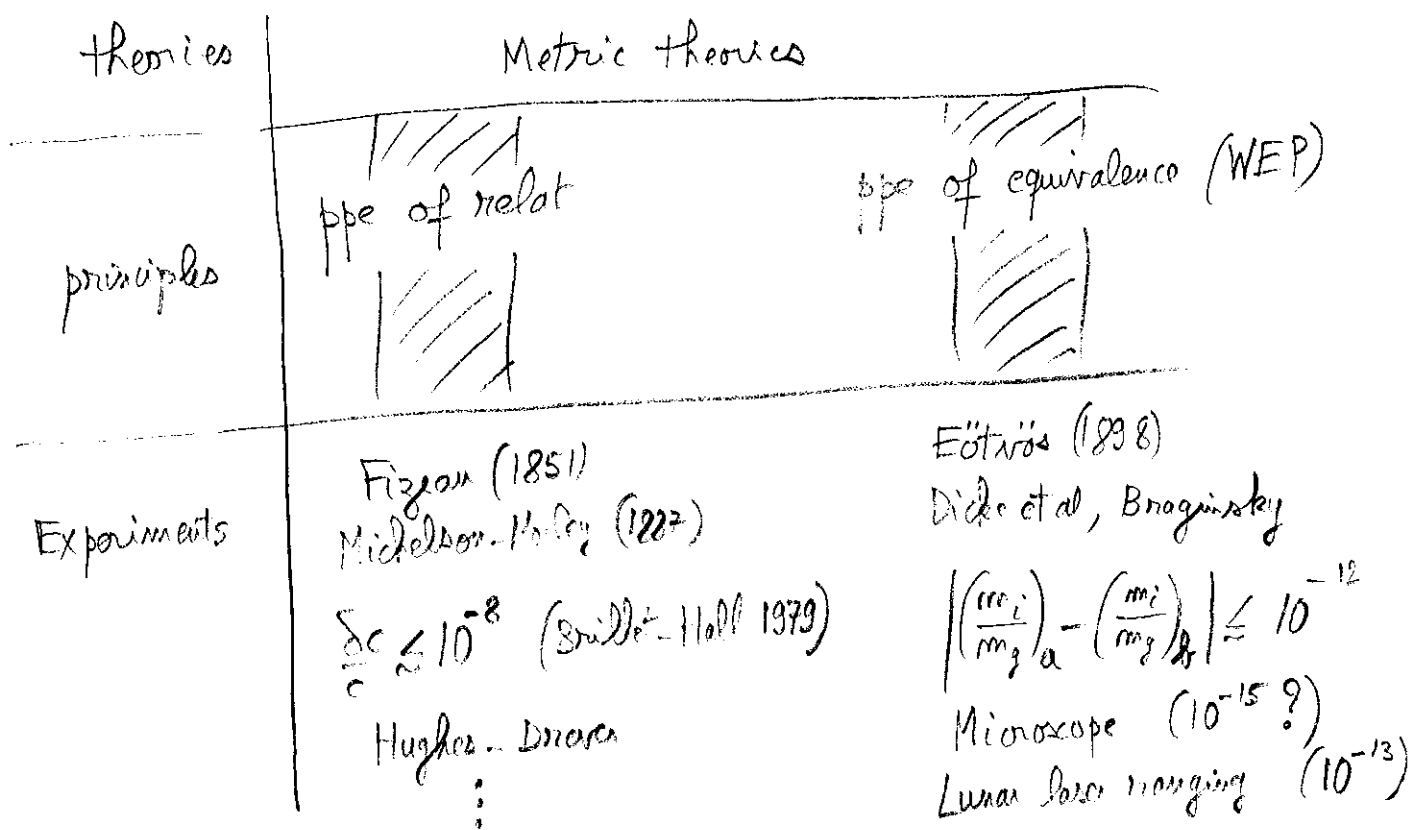 theories
Metric theories
principles
ppe of relat
ppe of equivalence (WEP)
Experiments
Fizeau (1851)
Michelson-Morley (1887)
δc/c ≲ 10⁻⁸ (Brillet-Hall 1979)
Hughes-Drever
⋮
Eötvös (1898)
Dicke et al, Braginsky
|(mᵢ/m_g)_a - (mᵢ/m_g)_b| ≲ 10⁻¹²
Microscope (10⁻¹⁵ ?)
Lunar laser ranging (10⁻¹³)